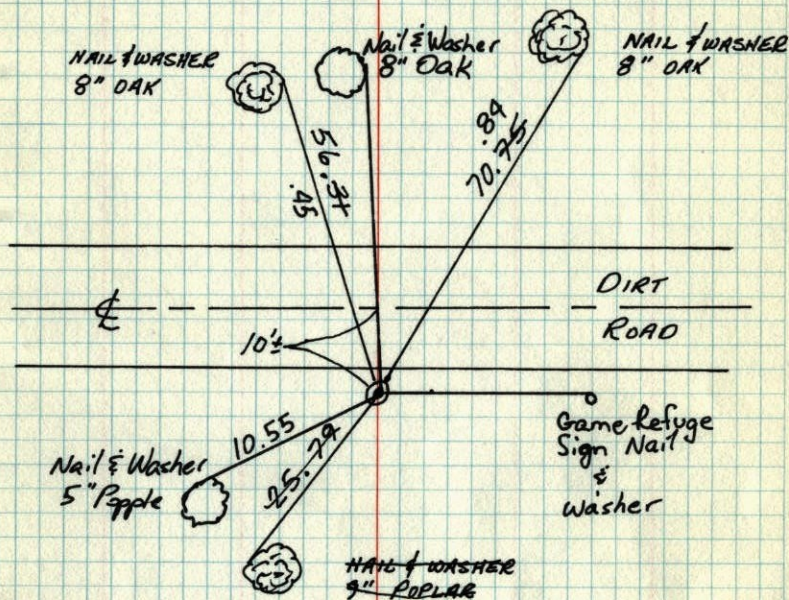 NAIL & WASHER
8" OAK
Nail & Washer
8" Oak
NAIL & WASHER
8" OAK
56.31
.45
.84
70.75
DIRT
ROAD
℄
10'±
10.55
25.79
Game Refuge
Sign Nail
&
Washer
Nail & Washer
5" Popple
NAIL & WASHER
9" POPLAR